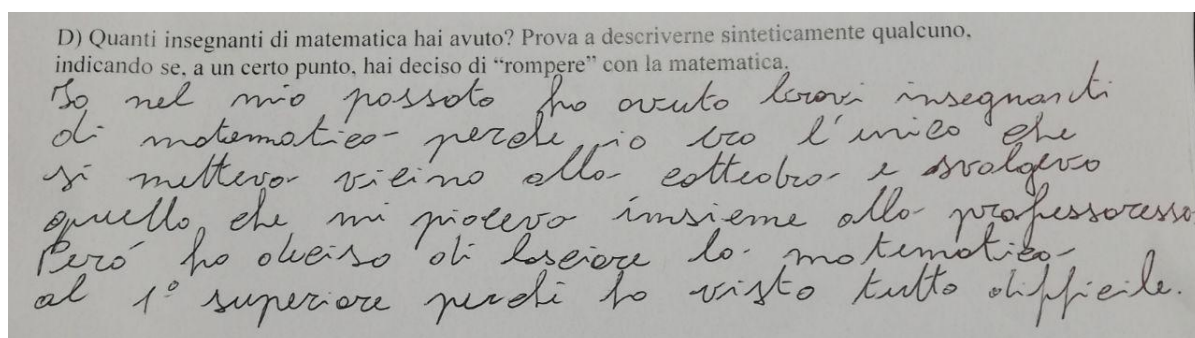 D) Quanti insegnanti di matematica hai avuto? Prova a descriverne sinteticamente qualcuno,
indicando se, a un certo punto, hai deciso di “rompere” con la matematica.
Io nel mio passato ho avuto bravi insegnanti
di matematica perché io ero l'unico che
si metteva vicino alla cattedra e svolgevo
quello che mi piaceva insieme alla professoressa
Però ho deciso di lasciare la matematica
al 1° superiore perché ho visto tutto difficile.